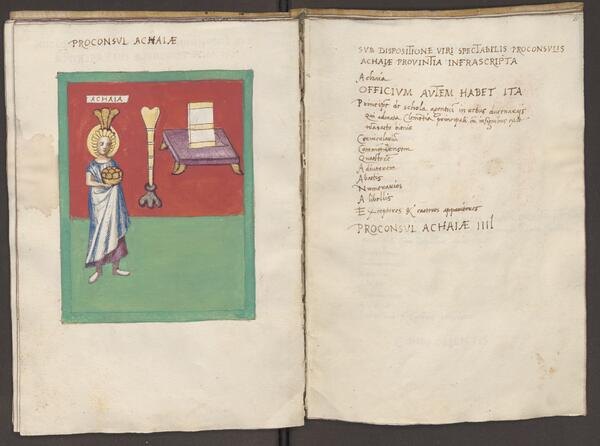 PROCONSUL ACHAIÆ
ACHAIA
SVB DISPOSITIONE VIRI SPECTABILIS PROCONSVLIS
ACHAIÆ PROVINTIA INFRASCRIPTA
Achaia
OFFICIVM AVTEM HABET ITA
Principem de schola agentum in rebus
qui
Cornicularium
Commentariensem
Adiutorem
Ab actis
Numerarios
A libellis
Exceptores & caeteros apparitores
PROCONSVL ACHAIÆ IIII